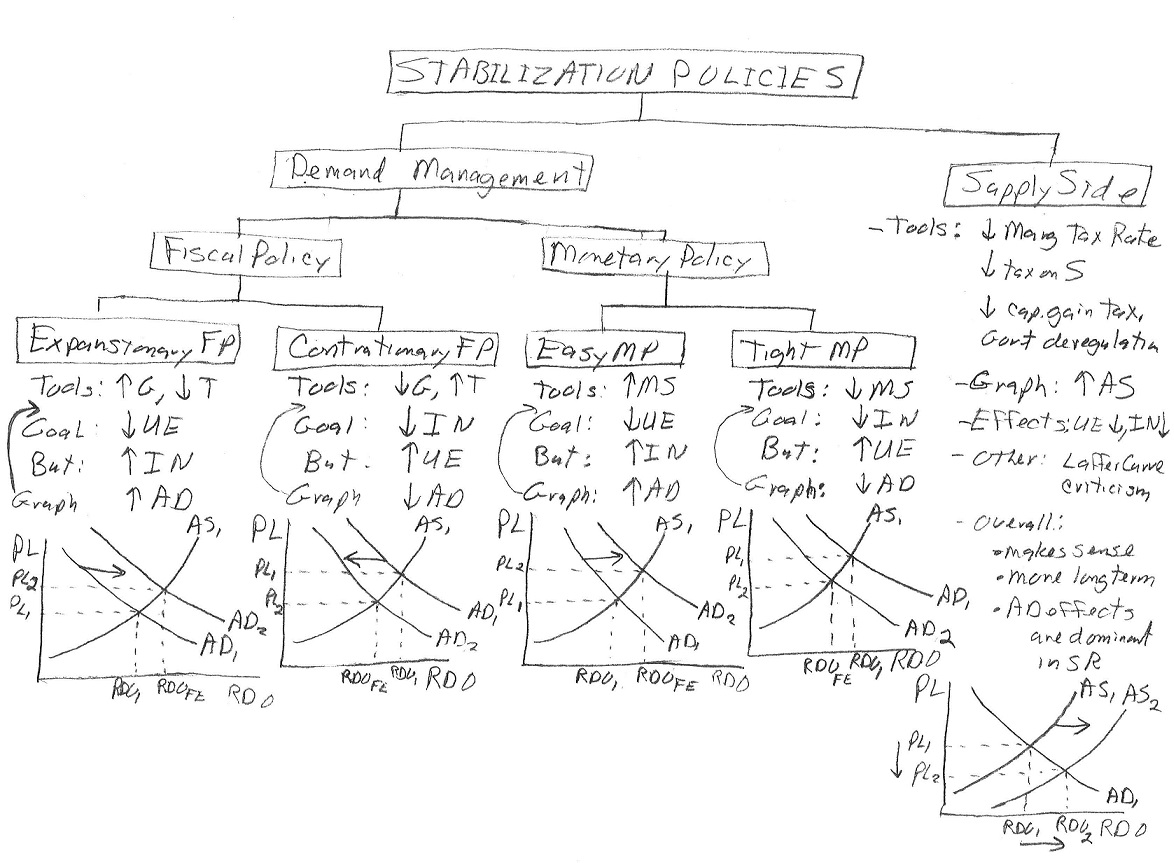 STABILIZATION POLICIES
Demand Management
Supply Side
Fiscal Policy
Monetary Policy
Expansionary FP
Tools: ↑G, ↓T
Goal: ↓UE
But: ↑IN
Graph ↑AD
PL
PL2
PL1
AS1
AD2
AD1
RDO1
RDOFE
RDO
Contrationary FP
Tools: ↓G, ↑T
Goal: ↓IN
But. ↑UE
Graph ↓AD
PL
PL1
PL2
AS1
AD1
AD2
RDOFE
RDO1
RDO
Easy MP
Tools: ↑MS
Goal: ↓UE
But: ↑IN
Graph: ↑AD
PL
PL2
PL1
AS1
AD2
AD1
RDO1
RDOFE
RDO
Tight MP
Tools: ↓MS
Goal: ↓IN
But: ↑UE
Graph: ↓AD
PL
PL1
PL2
AS1
AD1
AD2
RDOFE
RDO1
RDO
- Tools: ↓ Marg Tax Rate
↓ tax on S
↓ cap. gain tax,
Govt deregulation
- Graph: ↑AS
- Effects: UE↓, IN↓
- Other: Laffer Curve
criticism
- Overall:
• makes sense
• more long term
• AD effects
are dominant
in SR
PL
PL1
↓ PL2
AS1
AS2
AD1
RDO1
RDO2
RDO
→